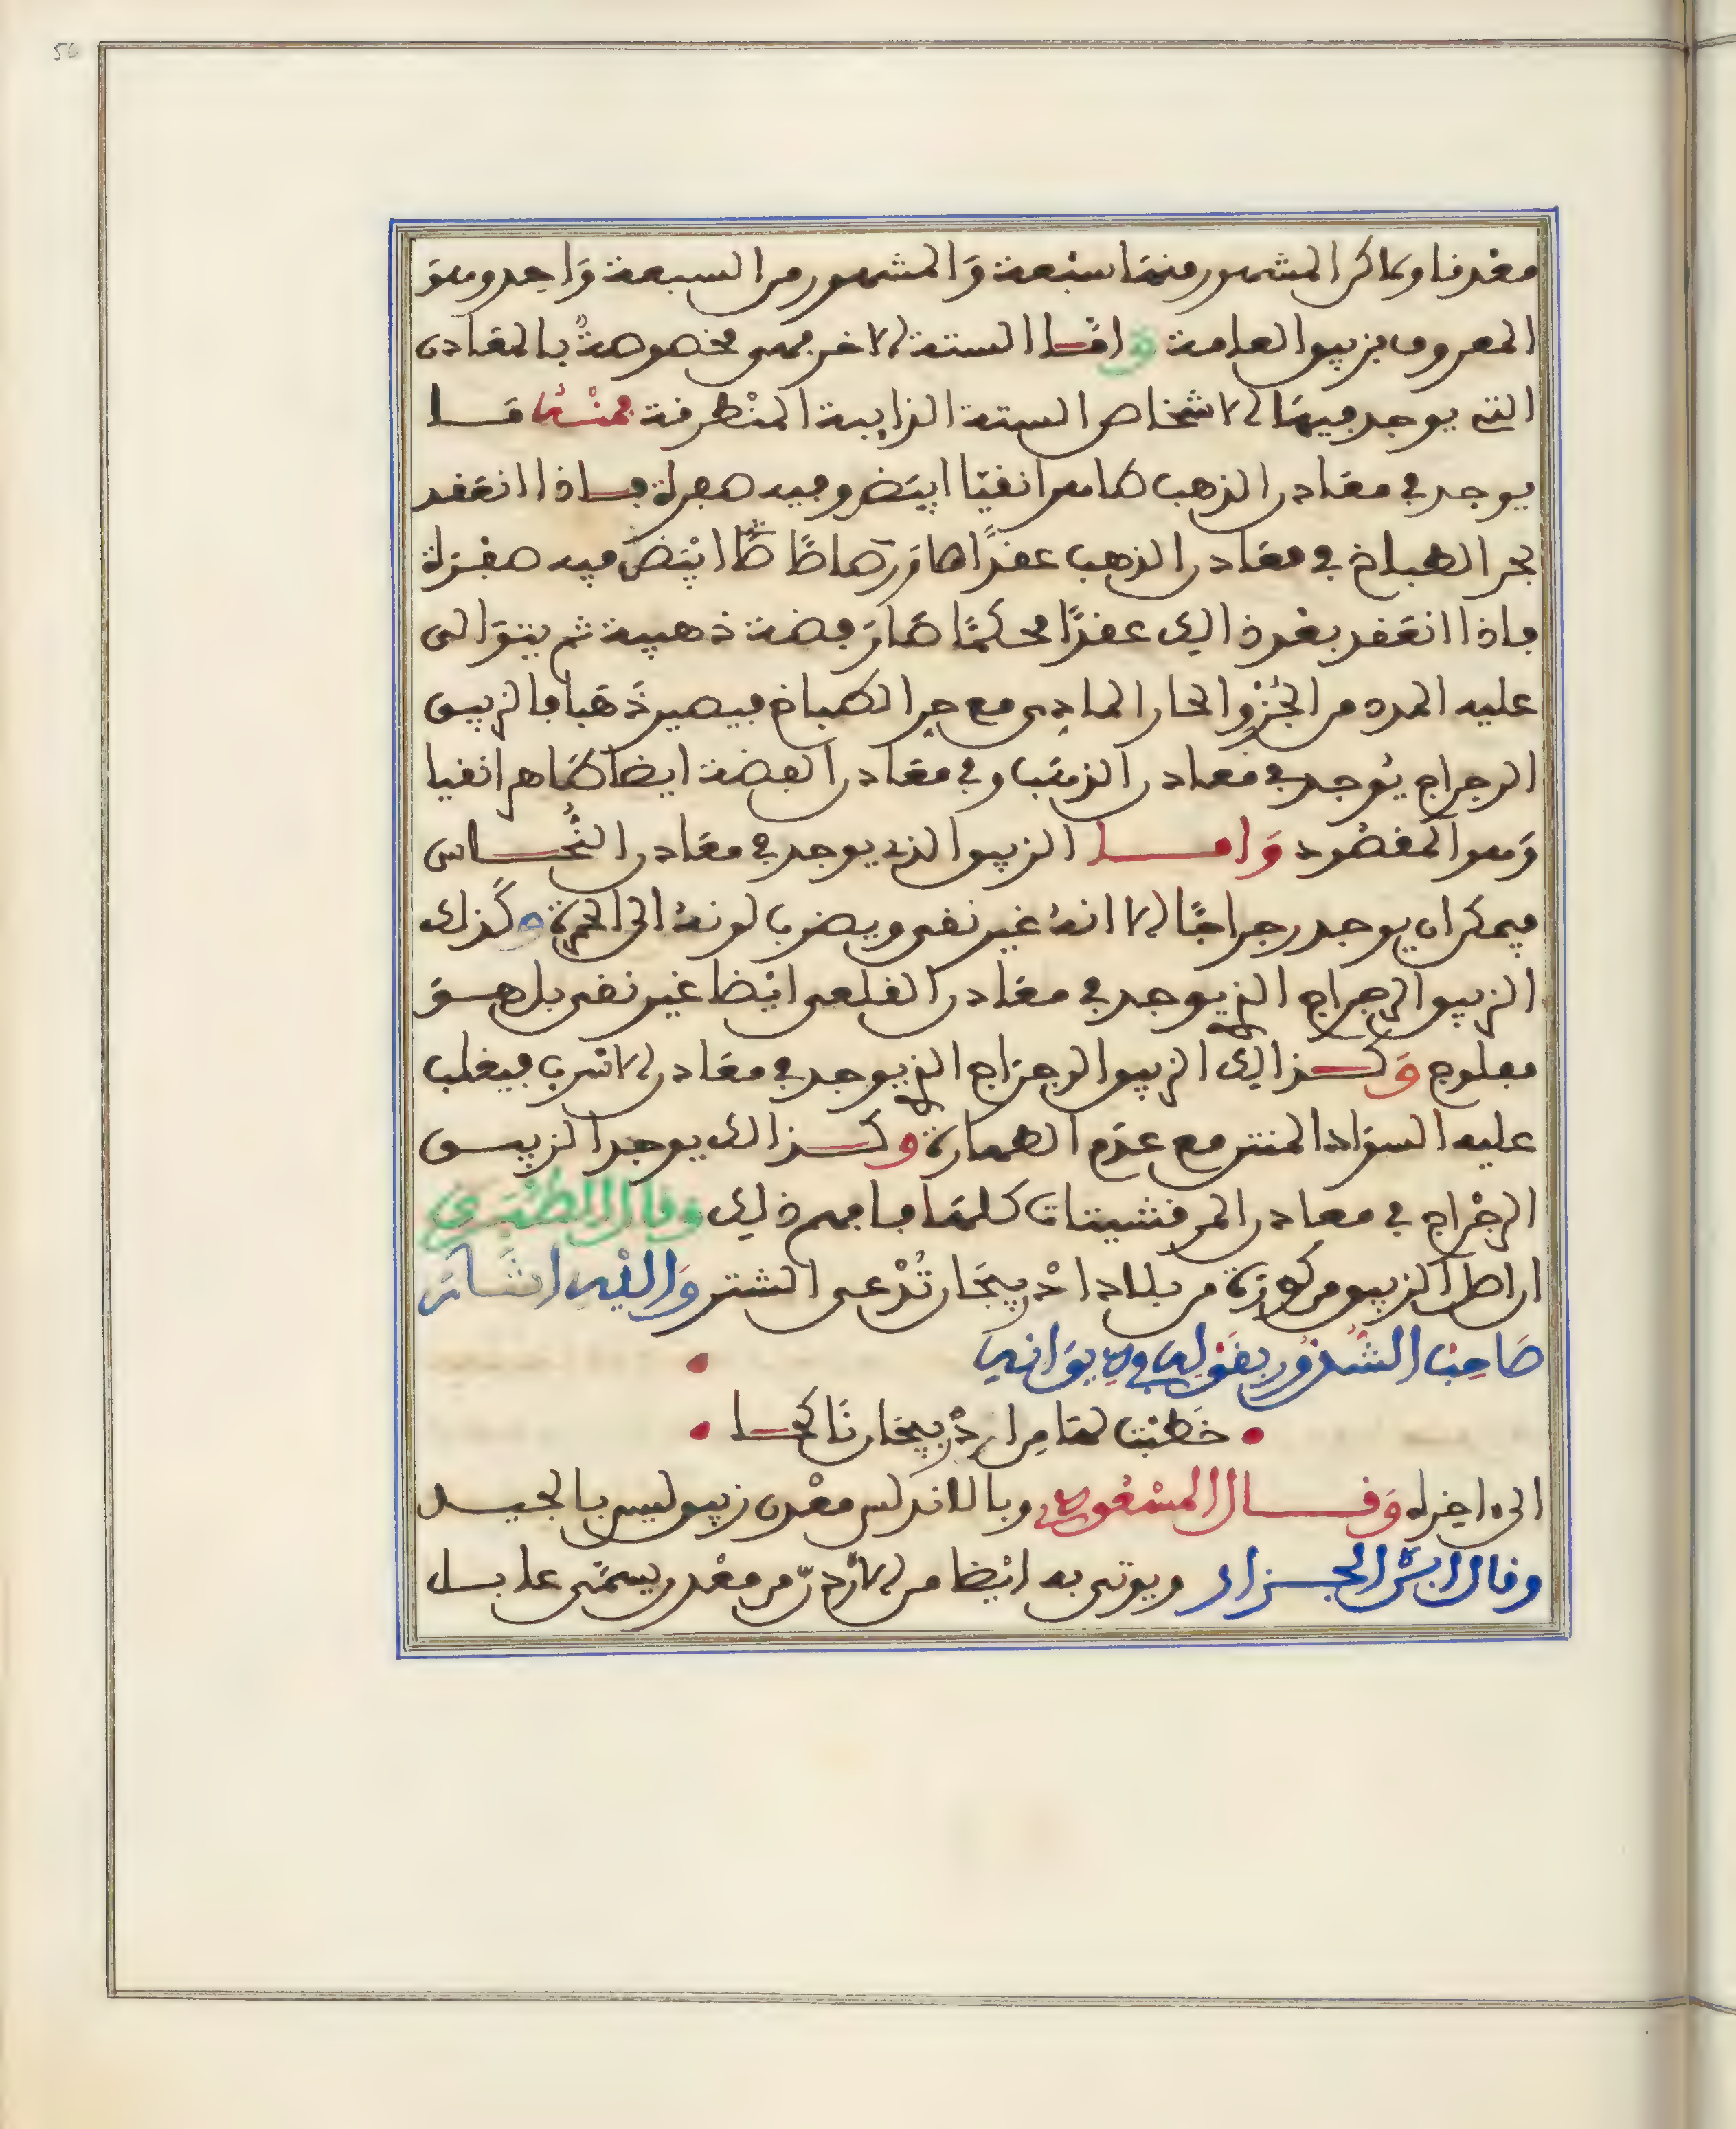 56
معدنا ولاكن المشهور منها سبعة والمشهور من السبعة واحد وهو
المعروف بزيبق العامة واما الستة الاخر فهى مخصوصة بالمعادن
التي يوجد فيها الاشخاص الستة الذايبة المنطرفة فمنه ما
يوجد في معادن الذهب طاهرا نقيا ابيض وفيه صفرة فاذا انعقد
بحر الطباخ في معادن الذهب عقدا صار رصاصا ابيض فيه صفرة
فاذا انعقد بعد ذالك عقدا محكما صار فضة ذهبية ثم يتوالى
عليه المدد من الجزو الحار الهادى مع حر الطباخ فيصير ذهبا فالزيبق
الرجراج يوجد في معادن الذهب وفي معادن الفضة ايضا طاهرا نقيا
وهو المقصود واما الزيبق الذي يوجد في معادن النحاس
فيمكن ان يوجد رجراجا الا انه غير نقى ويضرب لونه الى الحمرة وكذلك
الزيبق الرجراج الذي يوجد في معادن القلعى ايضا غير نقى بل هو
مفلوج وكذالك الزيبق الرجراج الذي يوجد في معادن الاسرب فيغلب
عليه السواد المنتن مع عدم الطهارة وكذالك يوجد الزيبق
الرجراج في معادن المرقشيتات كلها فافهم ذلك وقال الطبري
ان اصل الزيبق من كورة من بلاد اذربيجان تدعى الشتر واليه اشار
صاحب الشذور بقوله في ديوانه
خطبت لها من اذربيجان ناكحا
الى اخره وقال المسعودي وبالاندلس معدن زيبق ليس بالجيد
وقال ابن الجزار ويوتى به ايضا من الاردن من معدن يسمى عابل